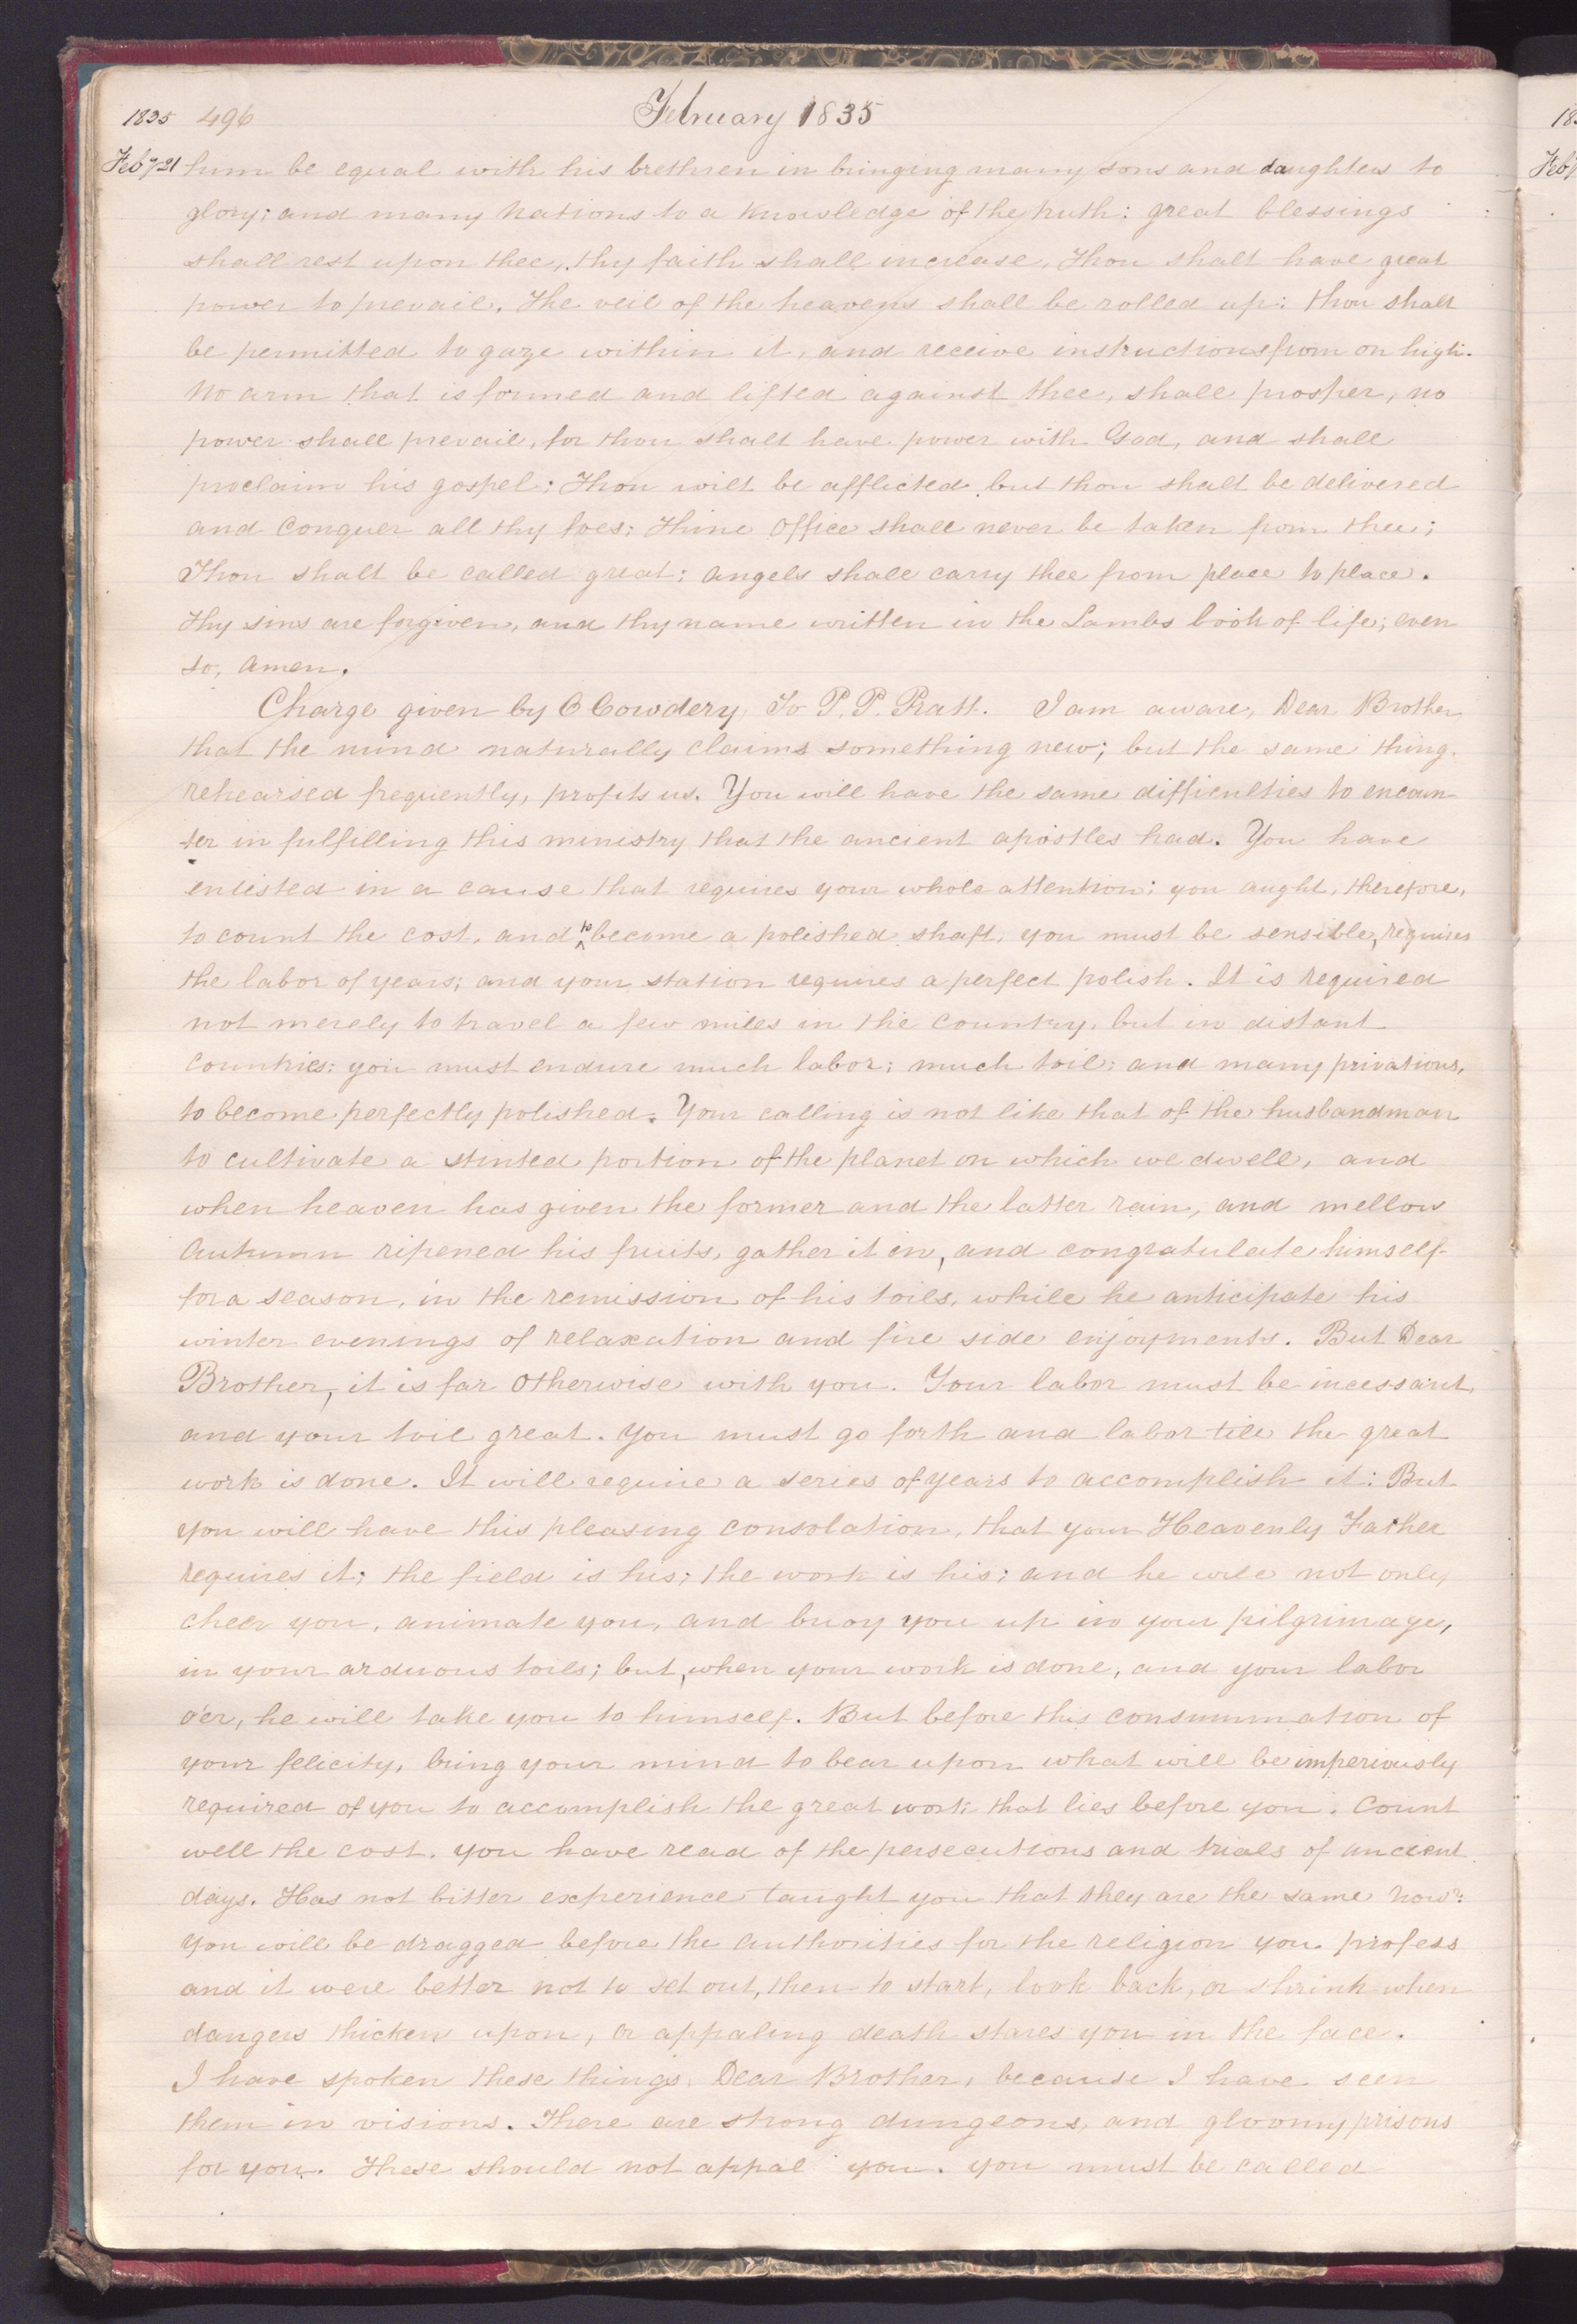 1835 496 February 1835
Feby 21 him be equal with his brethren in bringing many sons and daughters to
glory; and many nations to a knowledge of the truth: great blessings
shall rest upon thee, thy faith shall increase, Thou shalt have great
power to prevail. The veil of the heavens shall be rolled up: thou shalt
be permitted to gaze within it, and receive instructions from on high.
No arm that is formed and lifted against thee, shall prosper, no
power shall prevail, for thou shalt have power with God, and shall
proclaim his gospel; Thou wilt be afflicted, but thou shalt be delivered
and Conquer all thy foes; Thine office shall never be taken from thee;
Thou shalt be called great; angels shall carry thee from place to place.
Thy sins are forgiven, and thy name written in the Lambs book of life; even
so, Amen.
Charge given by O Cowdery, To P. P. Pratt. I am aware, Dear Brother,
that the mind naturally claims something new; but the same thing
rehearsed frequently, profits us. You will have the same difficulties to encoun-
-ter in fulfilling this ministry that the ancient apostles had. You have
enlisted in a cause that requires your whole attention; you aught, therefore,
to count the cost, and to become a polished shaft, you must be sensible, requires
the labor of years; and your station requires a perfect polish. It is required
not merely to travel a few miles in the country, but in distant
countries; you must endure much labor; much toil; and many privations,
to become perfectly polished. Your calling is not like that of the husbandman
to cultivate a stinted portion of the planet on which we dwell, and
when heaven has given the former and the latter rain, and mellow
Autumn ripened his fruits, gather it in, and congratulate himself
for a season, in the remission of his toils, while he anticipate his
winter evenings of relaxation and fire side enjoyments. But Dear
Brother, it is far otherwise with you. Your labor must be incessant,
and your toil great. You must go forth and labor till the great
work is done. It will require a series of years to accomplish it: But
you will have this pleasing consolation, that your Heavenly Father
requires it; the field is his; the work is his; and he will not only
cheer you, animate you, and buoy you up in your pilgrimage,
in your arduous toils; but, when your work is done, and your labor
o'er, he will take you to himself. But before this consummation of
your felicity, bring your mind to bear upon what will be imperiously
required of you to accomplish the great work that lies before you. Count
well the cost. You have read of the persecutions and trials of ancient
days. Has not bitter experience taught you that they are the same now?
You will be dragged before the authorities for the religion you profess
and it were better not to set out, then to start, look back, or shrink when
dangers thicken upon, or appaling death stares you in the face.
I have spoken these things, Dear Brother, because I have seen
them in visions. There are strong dungeons, and gloomy prisons
for you. These should not appal you. You must be called